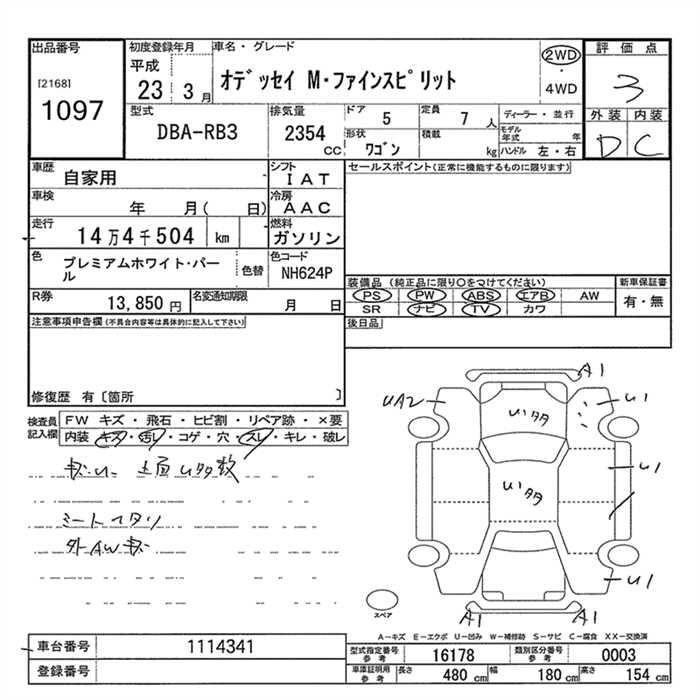 出品番号
[2168]
1097
初度登録年月
平成
23 3月
車名・グレード
オデッセイ M・ファインスピリット
2WD
・
4WD
評価点
3
外装 内装
D C
型式
DBA-RB3
排気量
2354
CC
ドア 5
定員 7人
形状 ワゴン
積載 kg
ディーラー・並行
モデル 年
ハンドル 左・右
車歴 自家用
シフト IAT
セールスポイント(正常に機能するものに限ります)
車検 年 月( 日)
冷房 AAC
走行 14万4千504 km
燃料 ガソリン
色 プレミアムホワイト・パール
色替
色コード NH624P
R券 13,850円
名変通知期限 月 日
装備品(純正品に限り○をつけてください)
PS PW ABS エアB AW
SR ナビ TV カワ
新車保証書
有・無
後日品
注意事項申告欄(不具合内容等は具体的に記入して下さい)
修復歴 有〔箇所 〕
検査員記入欄
FW キズ・飛石・ヒビ割・リペア跡・×要
内装 キズ・汚レ・コゲ・穴・スレ・キレ・破レ
シートヘタリ
外AWキズ
A1
UA2
U1
U1
U1
A1
A1
スペア
A-キズ E-エクボ U-凹み W-補修跡 S-サビ C-腐食 XX-交換済
車台番号 1114341
登録番号
型式指定番号参考 16178
類別区分番号参考 0003
車庫証明用参考 長さ 480cm 幅 180cm 高さ 154cm